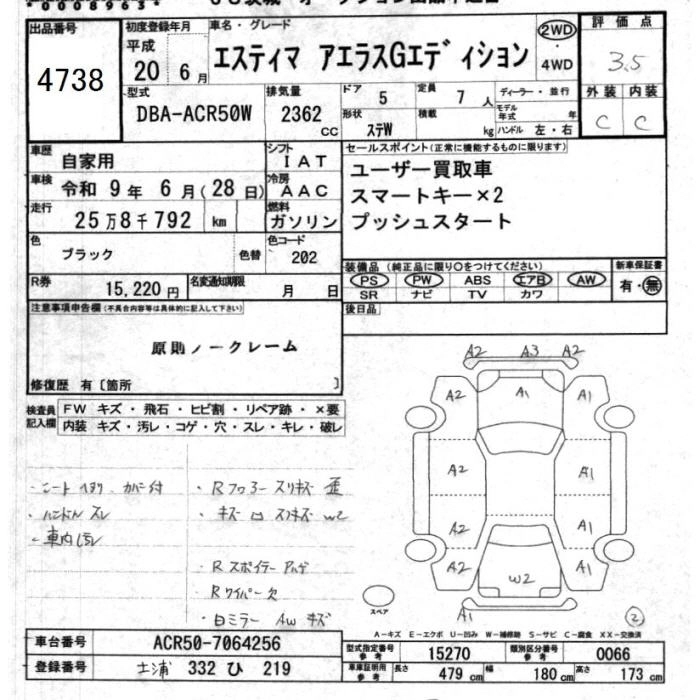 *0008963*
出品番号
4738
初度登録年月
平成
20 6月
車名・グレード
エスティマ アエラスGエディション
2WD
・
4WD
評価点
3.5
型式
DBA-ACR50W
排気量
2362
CC
ドア
5
定員
7 人
ディーラー・並行
モデル年式 年
形状
ステW
積載
kg
ハンドル 左・右
外装 内装
C C
車歴
自家用
シフト
IAT
セールスポイント(正常に機能するものに限ります)
車検
令和 9年 6月(28日)
冷房
AAC
ユーザー買取車
スマートキー×2
プッシュスタート
走行
25万8千792 km
燃料
ガソリン
色
ブラック
色替
色コード
202
装備品(純正品に限り○をつけてください)
PS PW ABS エアB AW
SR ナビ TV カワ
新車保証書
有・無
R券
15,220円
名変通知期限
月 日
後日品
注意事項申告欄(不具合内容等は具体的に記入して下さい)
原則ノークレーム
修復歴 有〔箇所 〕
検査員
記入欄
FW キズ・飛石・ヒビ割・リペア跡・×要
内装 キズ・汚レ・コゲ・穴・スレ・キレ・破レ
・シートヘタリ カバー付
・ハンドルスレ
・車内汚レ
・Rフロアー スリキズ 歪
・キズ凹 スリキズ W2
・Rスポイラー
・Rワイパー欠
・ミラー AW キズ
A2 A3 A2
A2 A1 A2
A2 A1
A2 A1
A2 W2 A1
A1
スペア
2
A-キズ E-エクボ U-凹み W-補修跡 S-サビ C-腐食 XX-交換済
車台番号
ACR50-7064256
登録番号
土浦 332 ひ 219
型式指定番号
参考
15270
類別区分番号
参考
0066
車庫証明用
参考
長さ
479 cm
幅
180 cm
高さ
173 cm